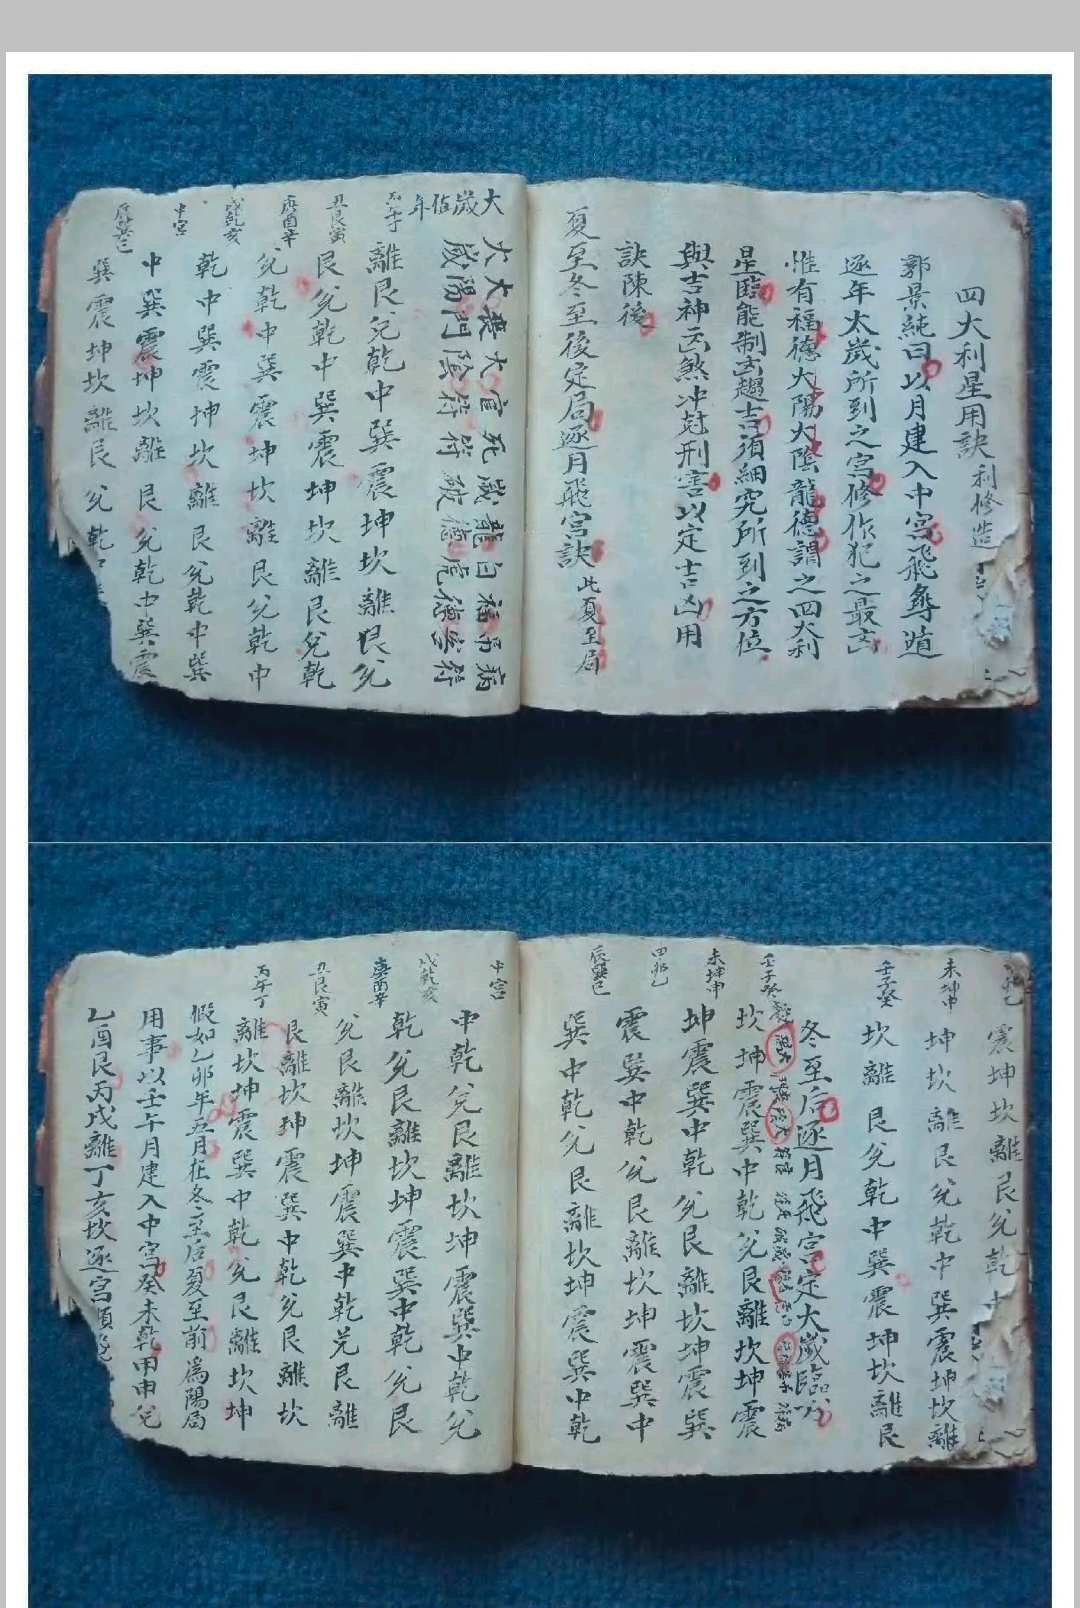 四大利星用訣 利修造
郭景純曰以月建入中宮飛尋遁
逐年太歲所到之宮修作犯之最凶
惟有福德太陽太陰龍德謂之四大利
星臨能制凶趨吉須細究所到之方位
與吉神凶煞冲尅刑害以定吉凶用
訣陳後
夏至冬至後定局逐月飛宮訣 此夏至局
大歲佔年
大大喪大官死歲龍白福吊病
歲陽門陰符符破德虎德客符
離艮兌乾中巽震坤坎離艮兌
丑艮寅
艮兌乾中巽震坤坎離艮兌乾
庚酉辛
兌乾中巽震坤坎離艮兌乾中
戌乾亥
乾中巽震坤坎離艮兌乾中巽
中宮
中巽震坤坎離艮兌乾中巽震
辰巽巳
巽震坤坎離艮兌乾
震坤坎離艮兌乾中
未坤申
坤坎離艮兌乾中巽震坤坎離
壬子癸
坎離艮兌乾中巽震坤坎離艮
冬至后逐月飛宮定大歲臨
壬子癸
坎坤震巽中乾兌艮離坎坤震
未坤申
坤震巽中乾兌艮離坎坤震巽
甲卯乙
震巽中乾兌艮離坎坤震巽中
辰巽巳
巽中乾兌艮離坎坤震巽中乾
中宮
中乾兌艮離坎坤震巽中乾兌
戌乾亥
乾兌艮離坎坤震巽中乾兌艮
庚酉辛
兌艮離坎坤震巽中乾兌艮離
丑艮寅
艮離坎坤震巽中乾兌艮離坎
丙午丁
離坎坤震巽中乾兌艮離坎坤
假如乙卯年五月在冬至后夏至前為陽局
用事以壬午月建入中宮癸未乾甲申兌
乙酉艮丙戌離丁亥坎逐宮順